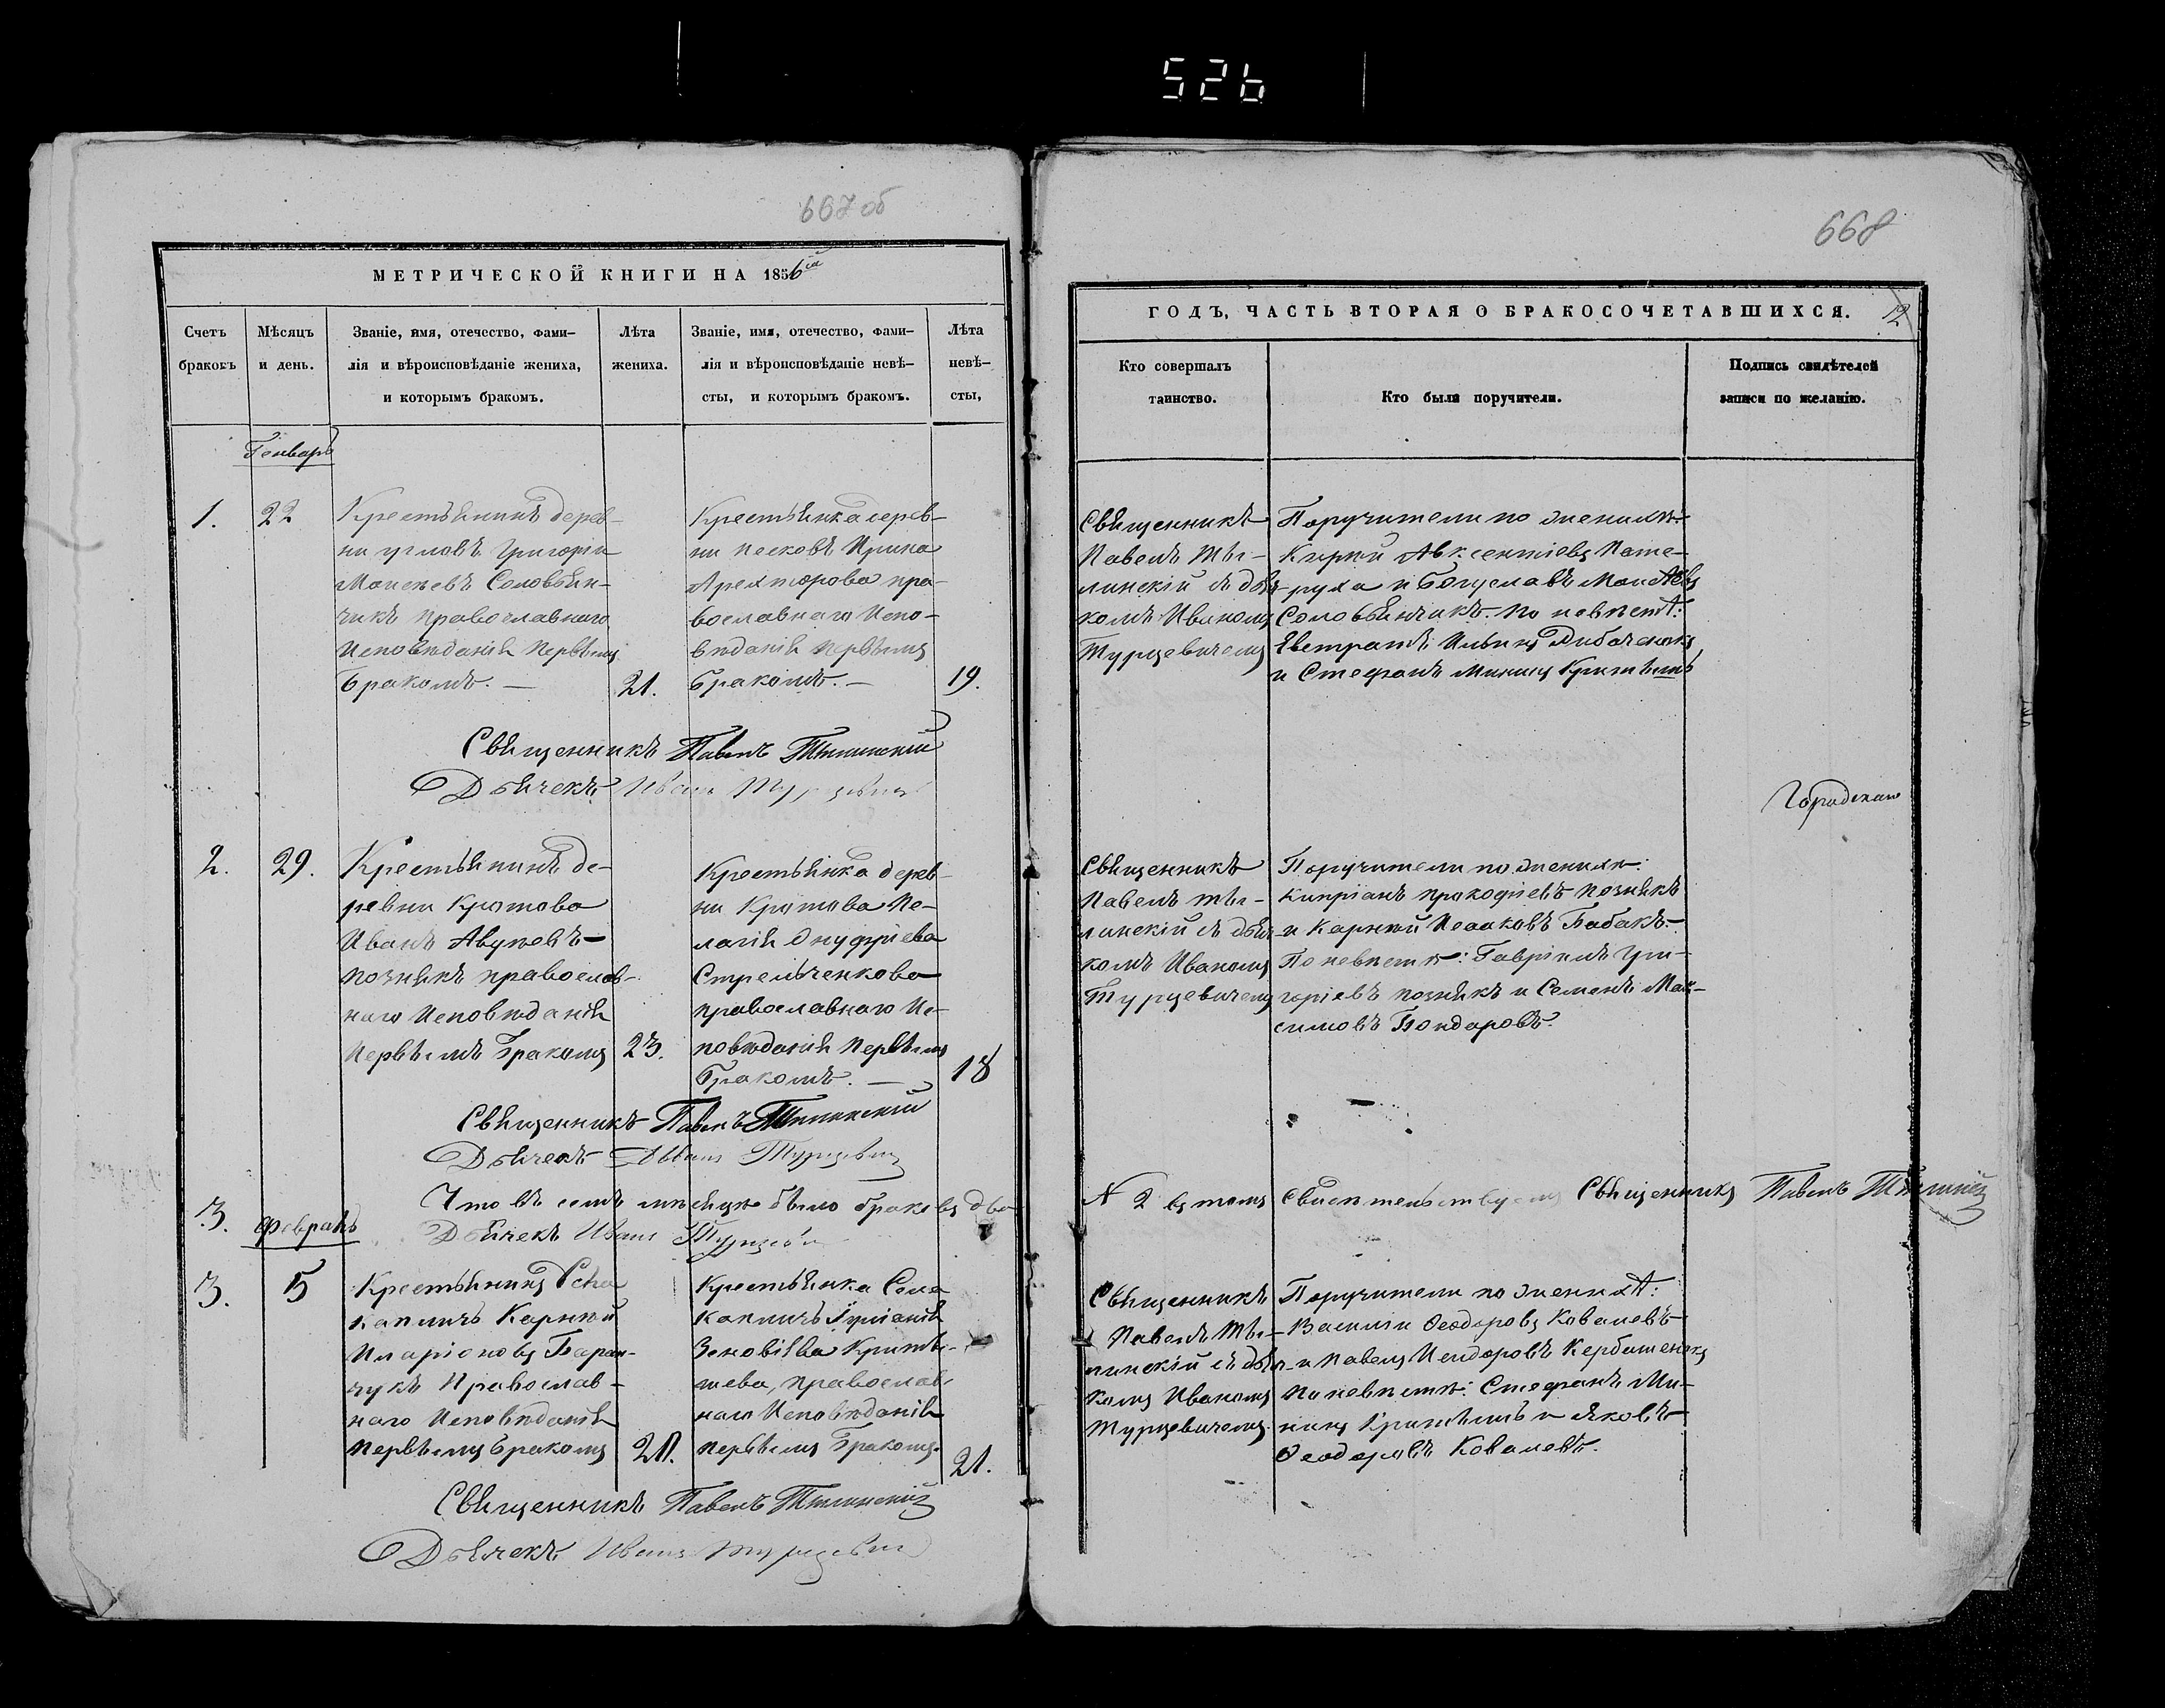 526
667 об
МЕТРИЧЕСКОЙ КНИГИ НА 1856
Счетъ браковъ
Мѣсяцъ и день.
Званіе, имя, отечество, фами-
лія и вѣроисповѣданіе жениха,
и которымъ бракомъ.
Лѣта жениха.
Званіе, имя, отечество, фами-
лія и вѣроисповѣданіе невѣ-
сты, и которымъ бракомъ.
Лѣта невѣ-
сты,
Генварь
1.
22
Крестьянинъ дерев-
ни угловъ Григорій
Моисеевъ Соловьян-
чикъ православнаго
Исповѣданія Первымъ
Бракомъ. —
21.
Крестьянка дерев-
ни песковъ Ирина
пра-
вославнаго Испо-
вѣданія первымъ
бракомъ. —
19.
Священникъ Павелъ
Дьячекъ Иванъ Турцевичъ
2.
29.
Крестьянинъ де-
ревни Кротова
Иванъ
познякъ православ-
наго Исповѣданія
Первымъ Бракомъ
23.
Крестьянка дерев-
ни Кротова Пе-
лагія Онуфріева
Стрельченкова
православнаго Ис-
повѣданія Первымъ
Бракомъ. —
18
Священникъ Павелъ
Дьячекъ Иванъ Турцевичъ
Что въ семъ мѣсяцѣ было браковъ два
3.
Февраль
Дьячекъ Иванъ
3.
5
Крестьянинъ Села
капличъ Корнѣй
Иларіоновъ Баран-
чукъ Православ-
наго Исповѣданія
Первымъ бракомъ
20.
Крестьянка Села
капличъ
православ-
наго Исповѣданія
первымъ Бракомъ.
21.
Священникъ Павелъ
Дьячекъ Иванъ Турцевичъ
668
ГОДЪ, ЧАСТЬ ВТОРАЯ О БРАКОСОЧЕТАВШИХСЯ. 12
Кто совершалъ
таинство.
Кто были поручители.
Подпись свидѣтелей
записи по желанію.
Священникъ
Павелъ Ты-
линскій съ дьяч-
комъ Иваномъ
Турцевичемъ
Поручители по женихѣ:
Авксентіевъ Пате-
руха и Богуславъ Моисѣевъ
Соловьянчикъ. по невѣстѣ:
Ильинъ
и Стефанъ Мининъ
Священникъ
Павелъ ты-
линскій съ дьяч-
комъ Иваномъ
Турцевичемъ
Поручители по женихѣ:
Кипріанъ прокофіевъ познякъ
и Корнѣй Исааковъ Бабакъ.
По невѣстѣ: Гавріилъ Гри-
горіевъ познякъ и Семенъ Мак-
симовъ Бондаровъ.
N 2 въ томъ Священникъ Павелъ
Священникъ
Павелъ Ты-
линскій съ дьяч-
комъ Иваномъ
Турцевичемъ.
Поручители по женихѣ:
Василій Ѳеодоровъ Ковалевъ
и Павелъ
по невѣстѣ: Стефанъ Ми-
нинъ и яковъ
Ѳеодоровъ Ковалевъ.